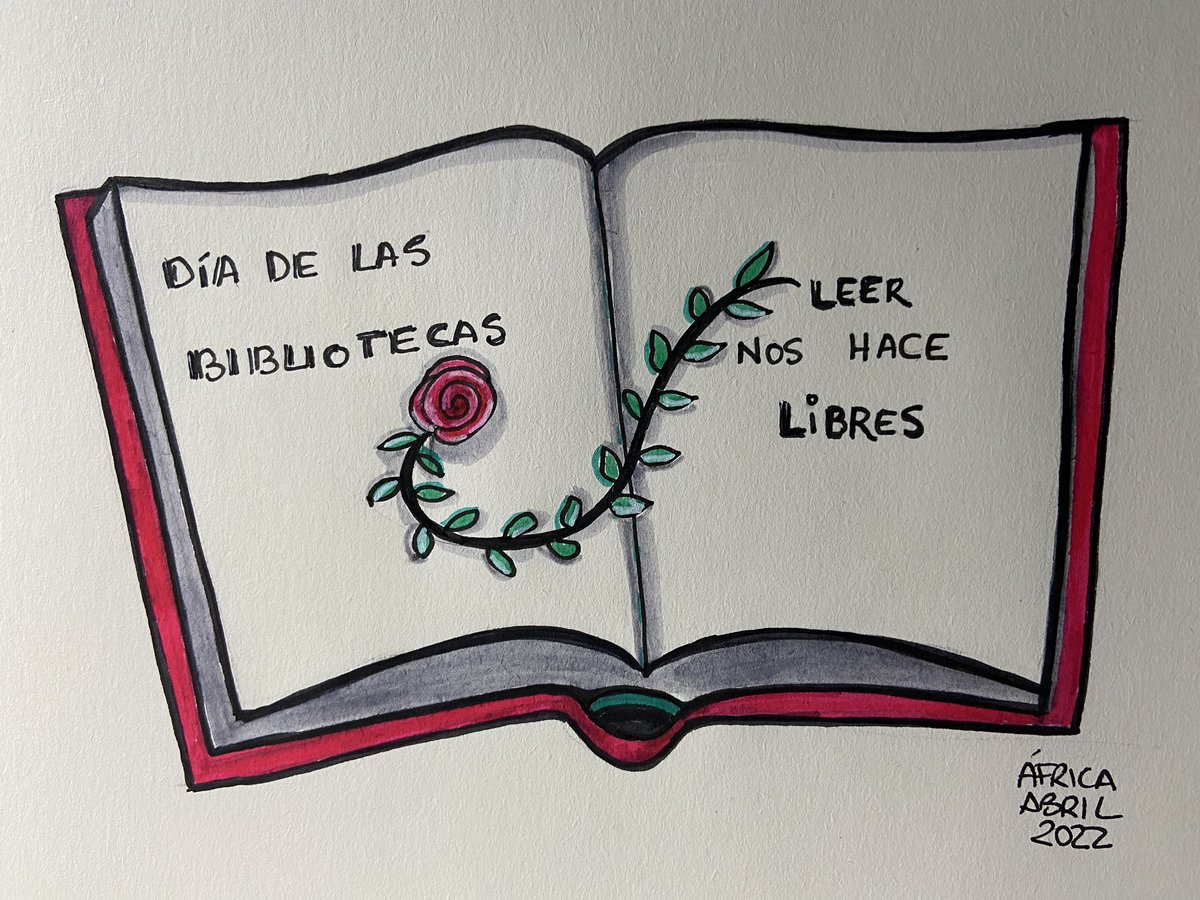 DÍA DE LAS
BIBLIOTECAS
LEER
NOS HACE
LIBRES
ÁFRICA
ABRIL
2022